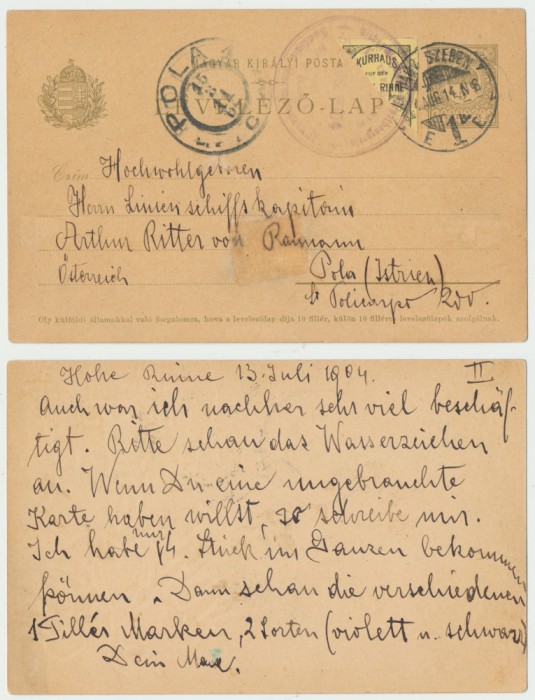 MAGYAR KIRÁLYI POSTA
LEVELEZŐ-LAP
POLA
KURHAUS
FUR DER
RINNE
SZEBEN
AUG 14
Czim
Hochwohlgeboren
Herrn Linienschiffskapitain
Arthur Ritter von
Österreich
Pola (Istrien)
Policarpo 200.
Oly külföldi államokkal való forgalomra, hova a levelezőlap díja 10 fillér, külön 10 filléres levelezőlapok szolgálnak.
Hohe Rinne 13. Juli 1904. II
auch war ich nachher sehr viel beschäf-
tigt. Bitte schau das Wasserzeichen
an. Wenn Du eine ungebrauchte
Karte haben willst, so schreibe mir.
Ich habe nur 14 Stück im Ganzen bekommen
können. Dann schau die verschiedenen
1 Fillér Marken, 2 Sorten (violett u. schwarz)
Dein